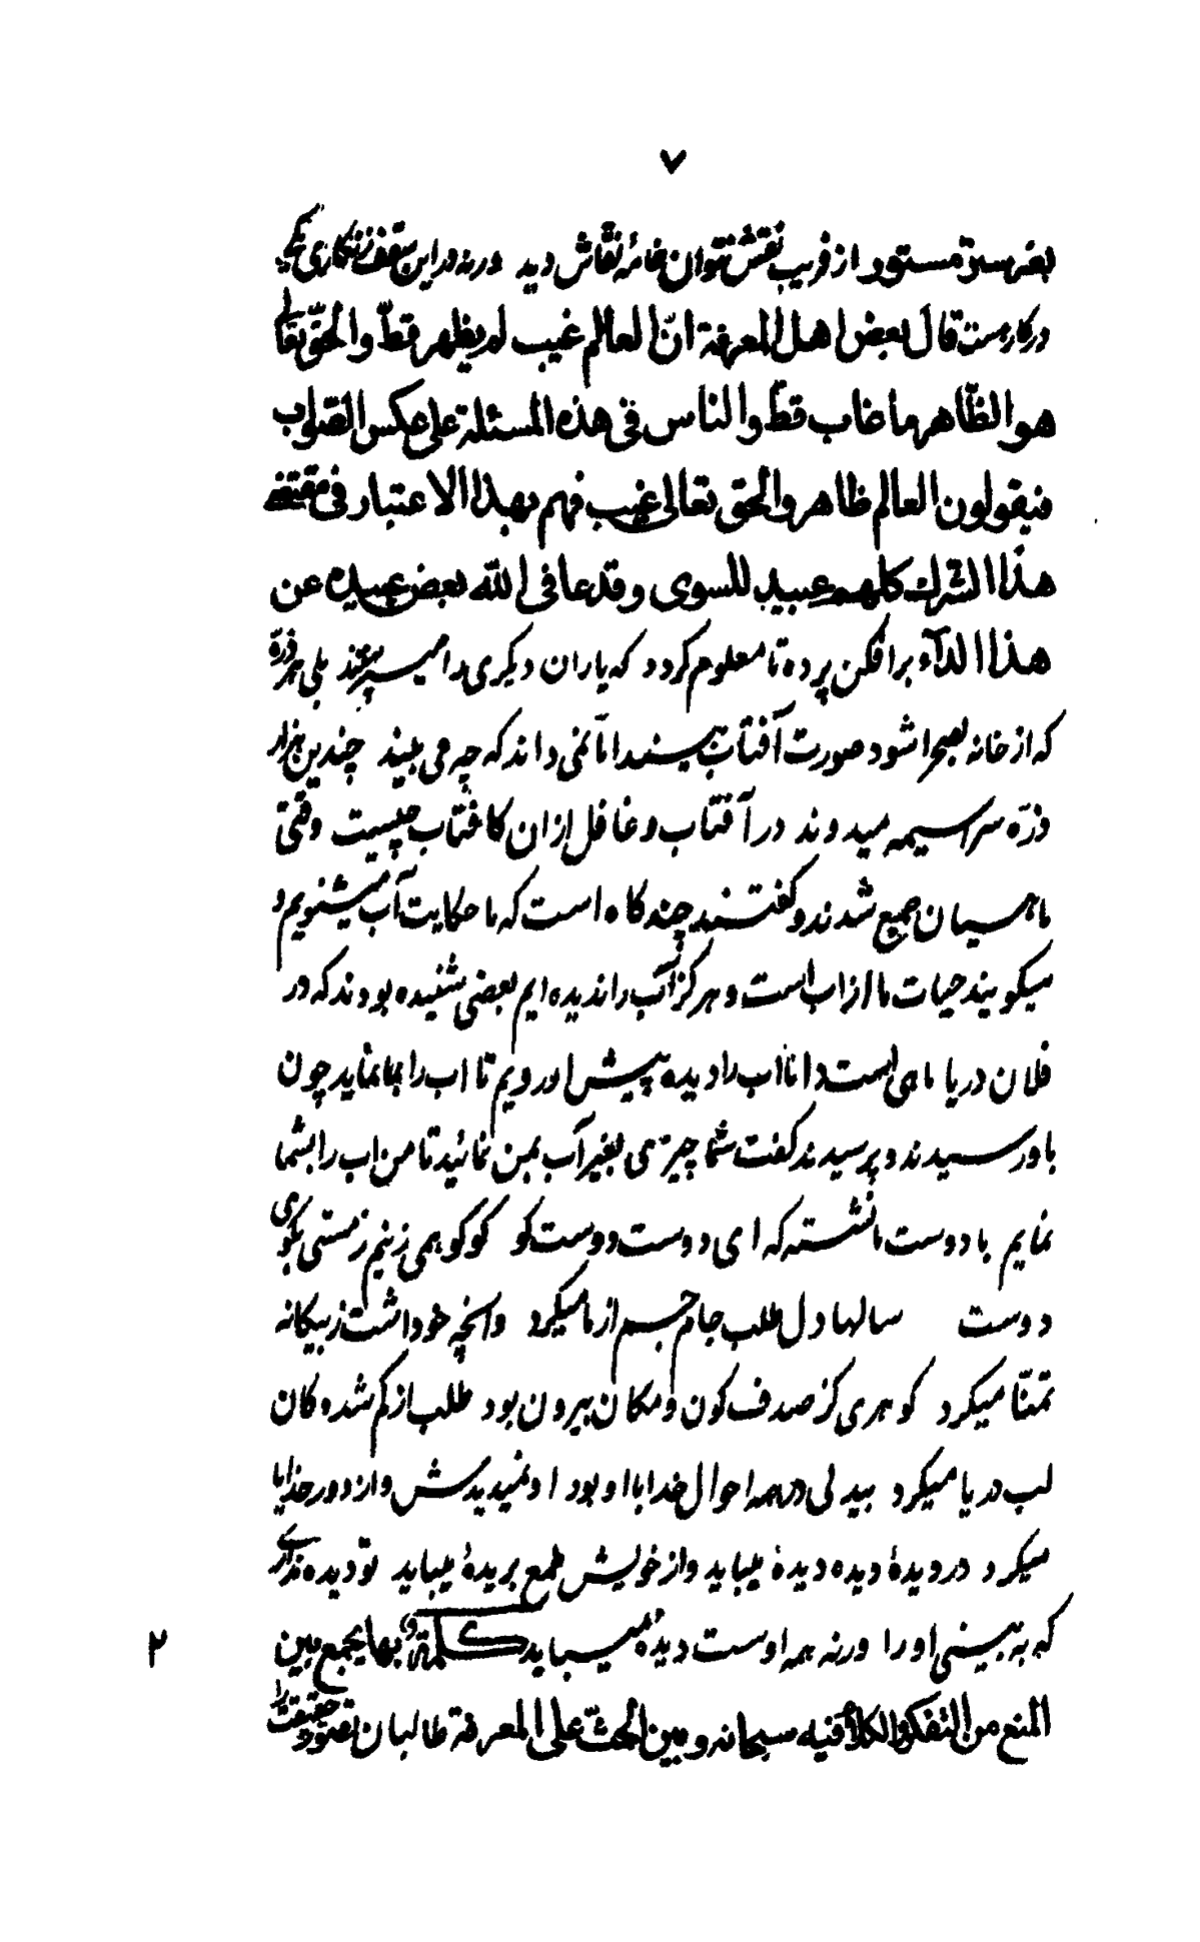 ٧
بغیر ستره مستور از فریب نقش نتوان خامهٔ نقاش دید ورنه در این سقف زنگاری یکی
در کارست قال بعض اهل المعرفة انّ العالم غیب لم یظهر قطّ والحقّ تعالی
هو الظّاهر ما غاب قطّ والناس فی هذه المسئلة علی عکس الصّواب
فیقولون العالم ظاهر والحق تعالی غیب فهم بهذا الاعتبار فی مقتضی
هذا الشرک کلهم عبید للسوی و قد عافی الله بعض عبیده عن
هذا الدآء برافکن پرده تا معلوم گردد که یاران دیگری را میپرستند بلی هر ذرّه
که از خانه بصحرا شود صورت آفتاب بیند اما نمی داند که چه می بیند چندین هزار
ذرّه سراسیمه میدوند در آفتاب و غافل ازان کافتاب چیست وقتی
ماهیان جمع شدند و گفتند چند گاه است که ما حکایت آب میشنویم و
میگویند حیات ما از اب است و هرگز آب را ندیده ایم بعضی شنیده بودند که در
فلان دریا ماهی است دانا اب را دیده پیش اورویم تا اب را بما نماید چون
باو رسیدند و پرسیدند گفت شما چیزی بغیر آب بمن نمائید تا من اب را بشما
نمایم با دوست ما نشسته که ای دوست دوست کو کو کو همی زنیم ز مستی بکوی
دوست سالها دل طلب جام جم از ما میکرد وانچه خود داشت ز بیگانه
تمنّا میکرد گوهری کز صدف کون و مکان بیرون بود طلب از گم شده گان
لب دریا میکرد بیدلی در همه احوال خدا با او بود او نمیدیدش و از دور خدایا
میکرد در دیدهٔ دیده دیدهٔ میباید و از خویش طمع بریدهٔ میباید تو دیده نداری
که به بینی او را ورنه همه اوست دیدهٔ میباید کلمة بها یجمع بین
المنع من التفکر والکلام فیه سبحانه و بین الحثّ علی المعرفة طالبان تصور حقیقت را
٢